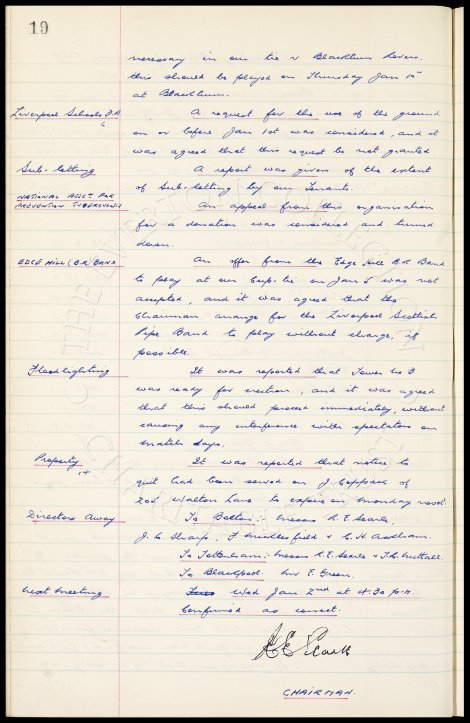 19
necessary in our tie v Blackburn Rovers.
this should be played on Thursday Jan 10th
at Blackburn.
Liverpool Schools F.A.
A request for the use of the ground
on or before Jan 1st was considered, and it
was agreed that this request be not granted
Sub-letting
A report was given of the extent
of Sub-letting by our Tenants.
NATIONAL ASSCN. FOR
PREVENTION TUBERCULOSIS
An appeal from this organisation
for a donation was considered and turned
down.
EDGE HILL (B.R.) BAND
An offer from the Edge Hill B.R. Band
to play at our Cup-tie on Jan 5 was not
accepted, and it was agreed that the
Chairman arrange for the Liverpool Scottish
Pipe Band to play without charge, if
possible.
Floodlighting
It was reported that Tower No 3
was ready for erection, and it was agreed
that this should proceed immediately, without
causing any interference with spectators on
match days.
Property
It was reported that notice to
quit had been served on J. Coppack of
Walton Lane to expire on Monday next.
Directors Away
To Bolton: Messrs R. E. Searle,
J. C. Sharp, F. Micklesfield & C. H. Askham.
To Tottenham: Messrs R. E. Searle & T. C. Nuttall.
To Blackpool. Mr E. Green.
Next Meeting
Wed Jan 2nd at 4.30 p.m.
Confirmed as correct.
CHAIRMAN.